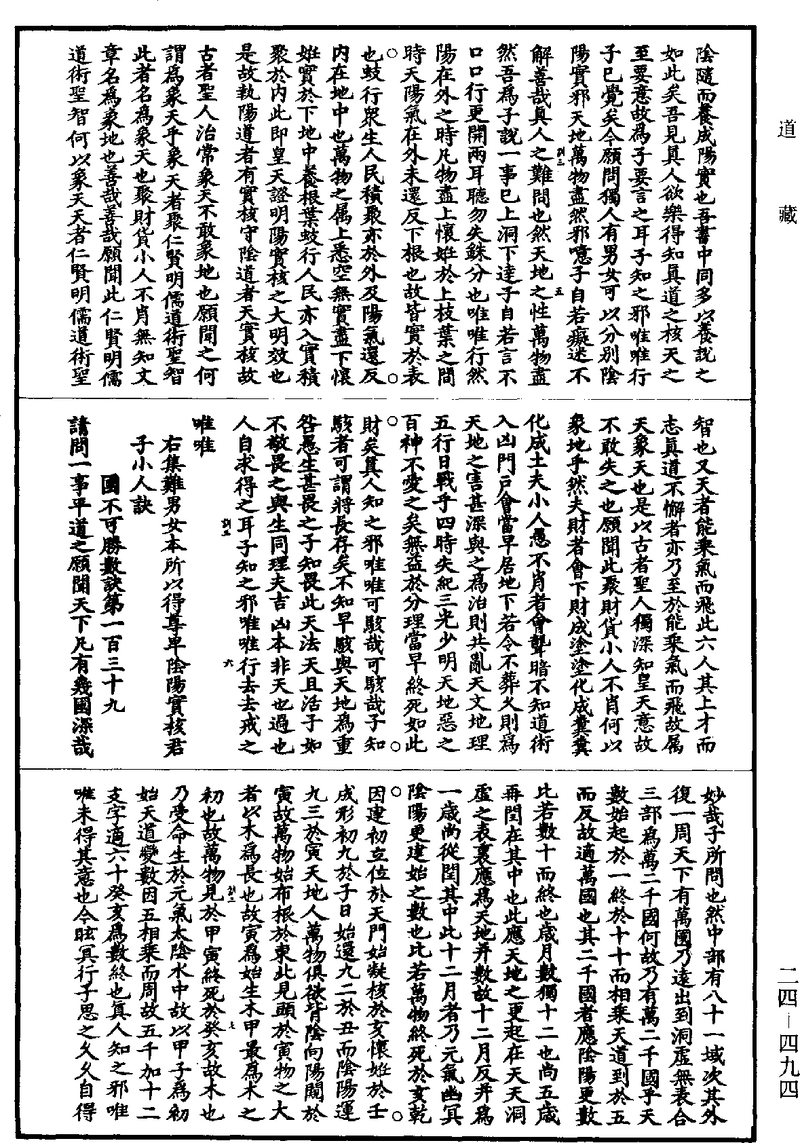 道藏
陰隨而養成陽實也吾書中同多以養說之
如此矣吾見真人欲樂得知真道之核天之
至要意故為子要言之耳子知之邪唯唯行
子已覺矣今願問獨人有男女可以分別陰
陽實邪天地萬物盡然邪噫子自若癡迷不
解善哉真人之難問也然天地之性萬物盡
然吾為子說一事已上洞下達子自若言不
口口行更開兩耳聽勿失銖分也唯唯行然
陽在外之時凡物盡上懷姙於上枝葉之間
時天陽氣在外未還反下根也故皆實於表
也蚑行衆生人民積聚亦於外及陽氣還反
内在地中也萬物之屬上悉空無實盡下懷
姙實於下地中養根葉蚑行人民亦入實積
聚於内此即皇天證明陽實核之大明效也
是故執陽道者有實核守陰道者天實核故
古者聖人治常象天不敢象地也願聞之何
謂為象天乎象天者聚仁賢明儒道術聖智
此者名為象天也聚財貨小人不肖無知文
章名為象地也善哉善哉願聞此仁賢明儒
道術聖智何以象天天者仁賢明儒道術聖
智也又天者能乘氣而飛此六人其上才而
志真道不懈者亦乃至於能乘氣而飛故屬
天象天也是以古者聖人獨深知皇天意故
不敢失之也願聞此聚財貨小人不肖何以
象地乎然夫財者會下財成塗塗化成糞糞
化成土夫小人愚不肖者會聾暗不知道術
入凶門戶會當早居地下若令不葬火則為
天地之害甚深與之為治則共亂天文地理
五行日戰乎四時失紀三光少明天地惡之
百神不愛之矣無益於分理當早終死如此
財矣真人知之邪唯唯可駭哉可駭哉子知
駭者可謂將長存矣不知早駭與天地為重
咎愚生甚畏之子知畏此天法天且活子如
不敬畏之與生同理夫吉凶本非天也過也
人自求得之耳子知之邪唯唯行去去戒之
唯唯
右集難男女本所以得尊卑陰陽實核君
子小人訣
國不可勝數訣第一百三十九
請問一事平道之願聞天下凡有幾國深哉
妙哉子所問也然中部有八十一域次其外
復一周天下有萬國乃遠出到洞虛無表合
三部為萬二千國何故乃有萬二千國乎天
數始起於一終於十十而相乘天道到於五
而反故適萬國也其二千國者應陰陽更數
比若數十而終也歲月數獨十二也尚五歲
再閏在其中也此應天地之更起在天天洞
虛之表裏應為天地并數故十二月反并為
一歲尚從閏其中此十二月者乃元氣幽冥
陰陽更建始之數也比若萬物終死於亥乾
因建初立位於天門始凝核於亥懷姙於壬
成形初九於子日始還九二於丑而陰陽運
九三於寅天地人萬物俱欲背陰向陽闚於
寅故萬物始布根於東北見頭於寅物之大
者以木為長也故寅為始生木甲最為木之
初也故萬物見於甲寅終死於癸亥故木也
乃受命生於元氣太陰水中故以甲子為初
始天道變數因五相乘而周故五千加十二
支字適六十癸亥為數終也真人知之邪唯
唯未得其意也今眩冥行子思之久久自得
二四—四九四